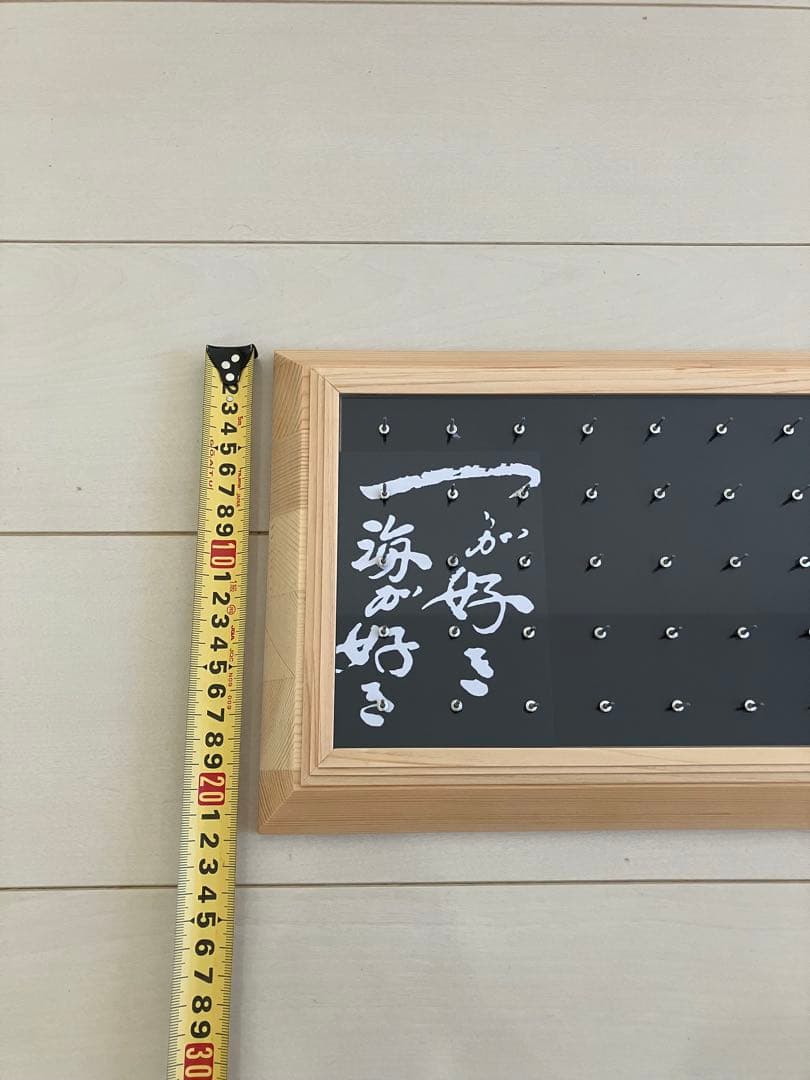 が好き
海が好き
2 3 4 5 6 7 8 9 10 1 2 3 4 5 6 7 8 9 20 1 2 3 4 5 6 7 8 9 30